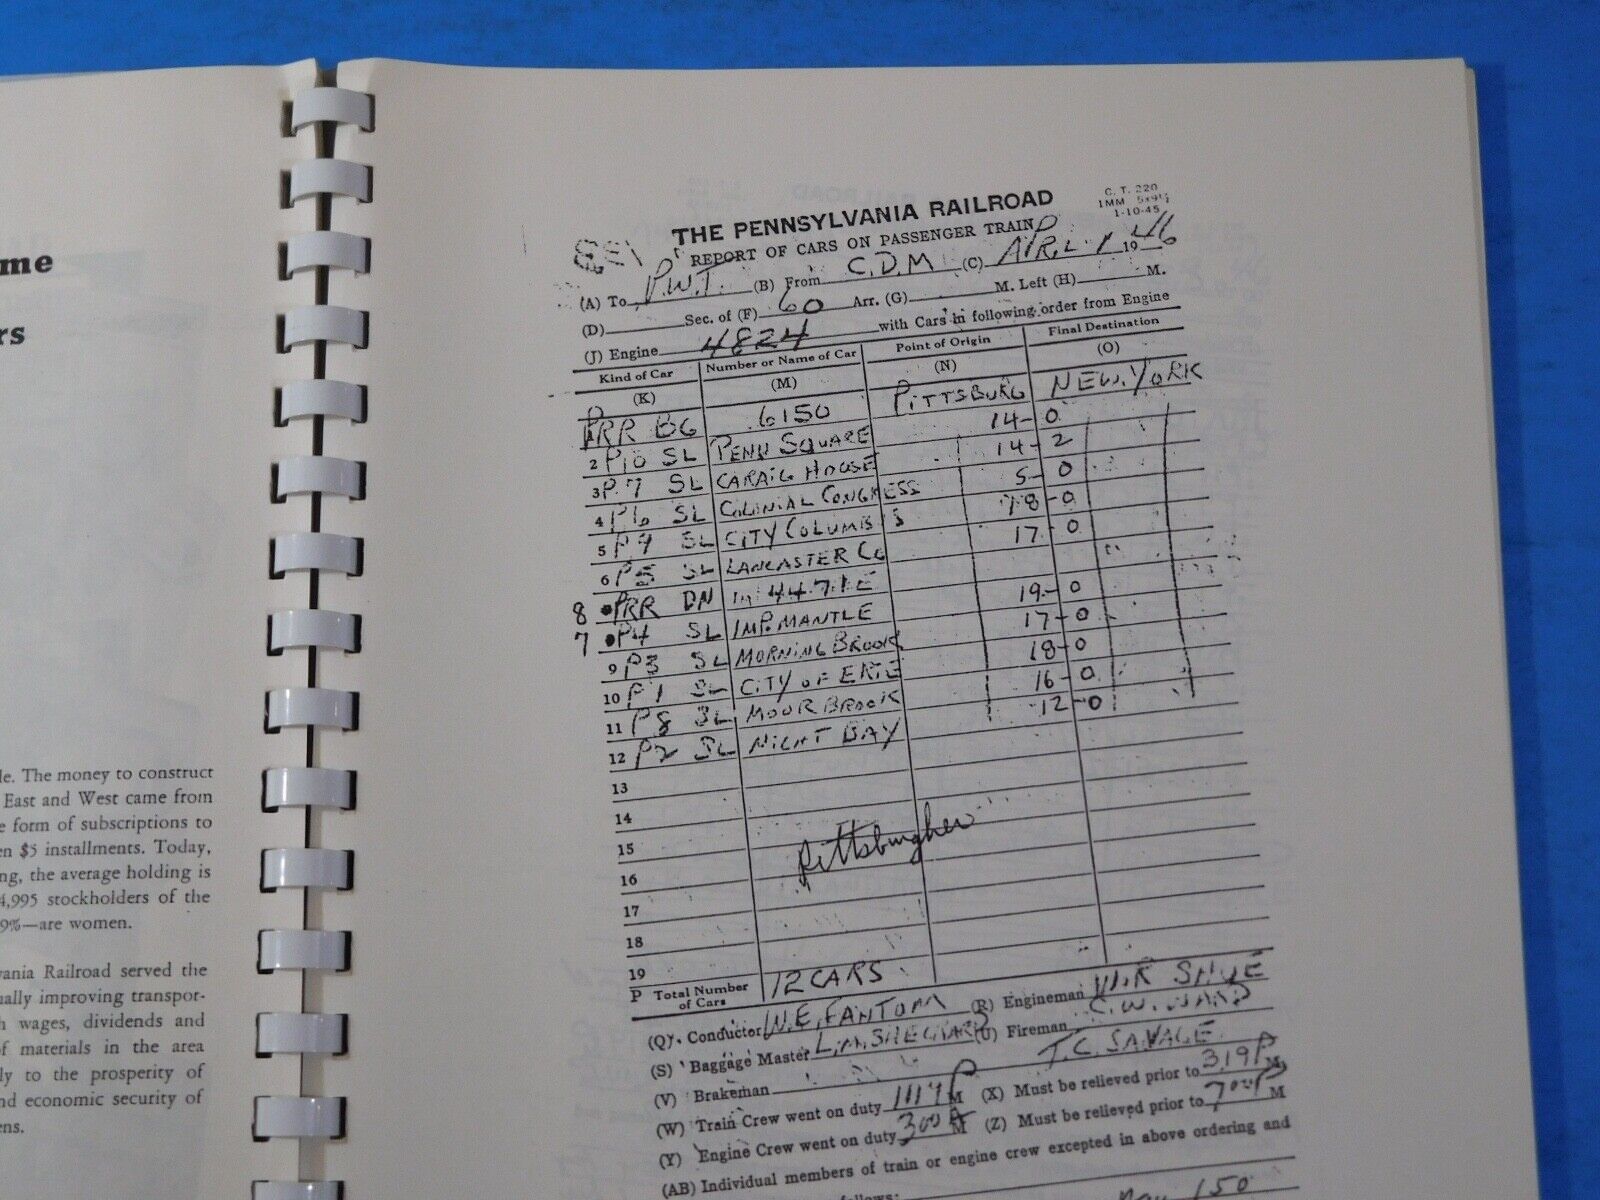 me
rs
le. The money to construct
East and West came from
e form of subscriptions to
en $5 installments. Today,
ng, the average holding is
4,995 stockholders of the
9%—are women.
vania Railroad served the
ually improving transpor-
h wages, dividends and
of materials in the area
ly to the prosperity of
nd economic security of
ens.
C. T. 220
1MM 5x9½
1-10-45
THE PENNSYLVANIA RAILROAD
REPORT OF CARS ON PASSENGER TRAIN
(A) To P.W.T. (B) From C.D.M (C) APRL 1 1946
(D) Sec. of (F) 60 Arr. (G) M. Left (H) M.
(J) Engine 4824 with Cars in following order from Engine
Kind of Car Number or Name of Car Point of Origin Final Destination
(K) (M) (N) (O)
PRR BG 6150 PITTSBURG NEW.YORK
2 P10 SL PENN SQUARE 14-0
3 P.7 SL CARAIG HOUSE 14-2
4 P6 SL COLONIAL CONGRESS 5-0
5 P9 SL CITY COLUMBUS 18-0
6 P5 SL LANCASTER CO 17-0
8 PRR DN 4471E
7 P4 SL IMP. MANTLE 19-0
9 P3 SL MORNING BROOK 17-0
10 P1 SL CITY OF ERIE 18-0
11 P8 SL MOOR BROOK 16-0
12 P2 SL NIGHT BAY 12-0
13
14
15 Pittsburgher
16
17
18
19
P Total Number of Cars 12 CARS
(Q) Conductor W.E. FANTOM (R) Engineman W.R SHUE
(S) Baggage Master L.M. SHEUARD (U) Fireman C.W. WARD
(V) Brakeman T.C. SAVAGE
(W) Train Crew went on duty 1117 P M (X) Must be relieved prior to 319 P M
(Y) Engine Crew went on duty 300 A M (Z) Must be relieved prior to 700 P M
(AB) Individual members of train or engine crew excepted in above ordering and
follows:
150